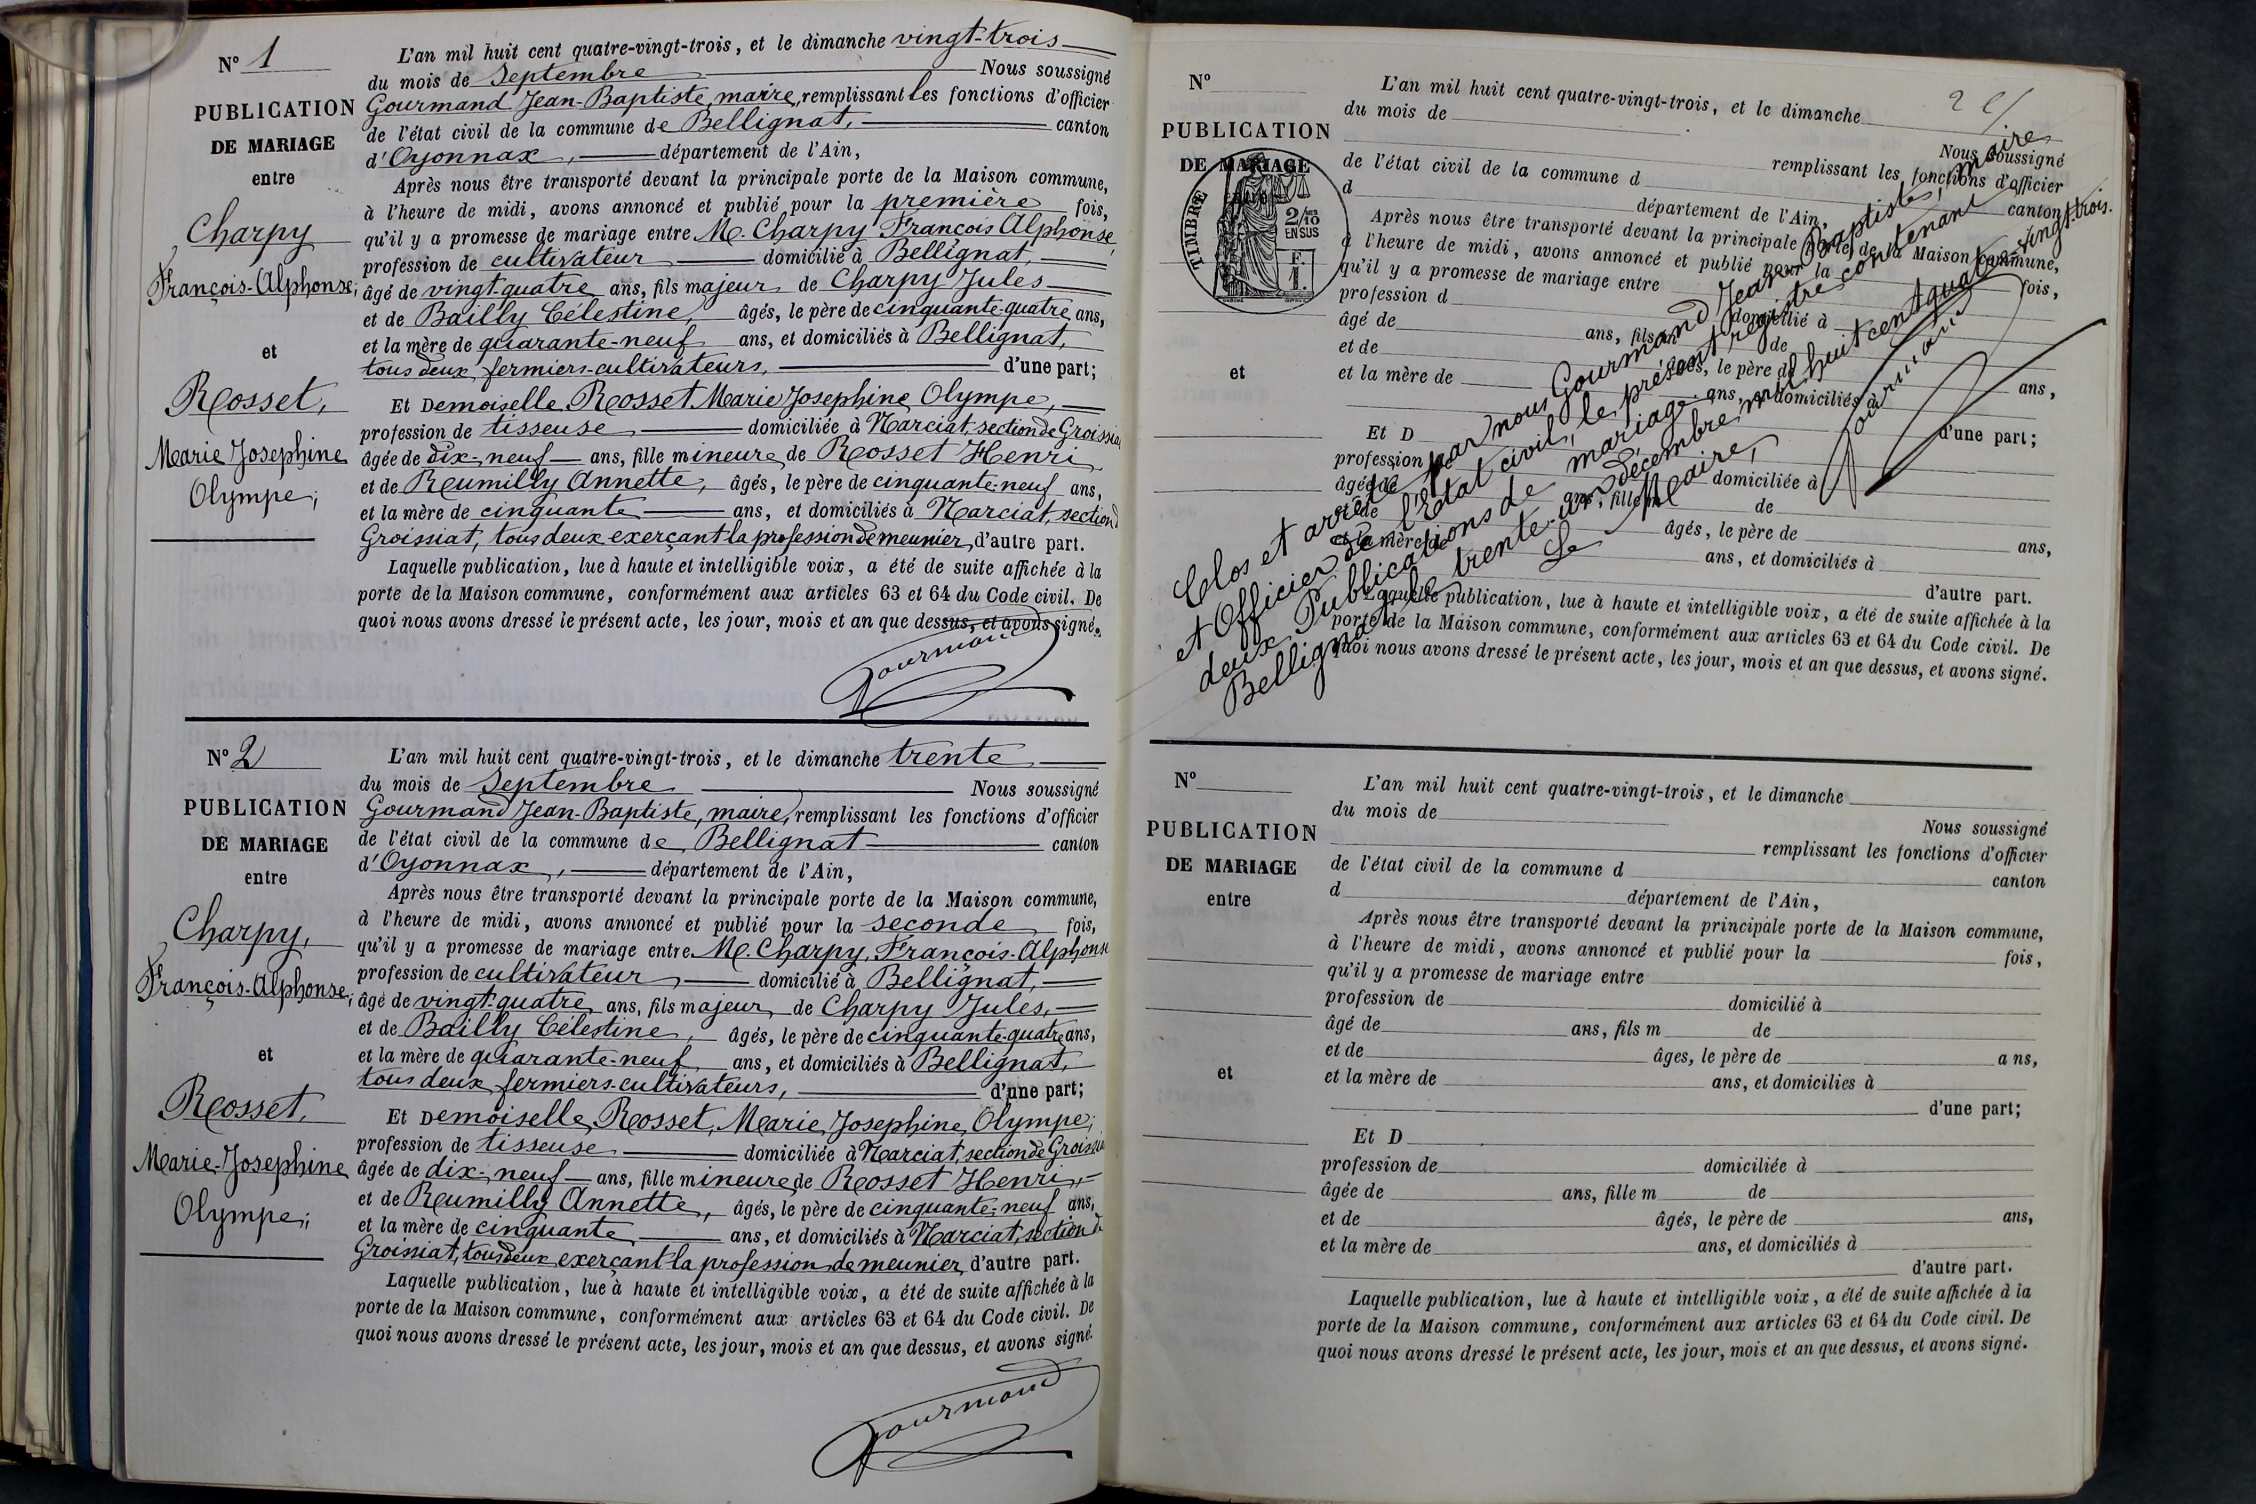 N° 1
PUBLICATION
DE MARIAGE
entre
Charpy
François-Alphonse;
et
Rosset,
Marie Josephine
Olympe;
L'an mil huit cent quatre-vingt-trois, et le dimanche vingt-trois
du mois de Septembre Nous soussigné
Gourmand Jean-Baptiste, maire, remplissant les fonctions d'officier
de l'état civil de la commune de Bellignat, canton
d'Oyonnax, département de l'Ain,
Après nous être transporté devant la principale porte de la Maison commune,
à l'heure de midi, avons annoncé et publié pour la première fois,
qu'il y a promesse de mariage entre M. Charpy François Alphonse,
profession de cultivateur domicilié à Bellignat,
âgé de vingt-quatre ans, fils majeur de Charpy Jules
et de Bailly Célestine, âgés, le père de cinquante-quatre ans,
et la mère de quarante-neuf ans, et domiciliés à Bellignat,
tous deux fermiers-cultivateurs, d'une part;
Et Demoiselle Rosset Marie Josephine Olympe,
profession de tisseuse domiciliée à Marciat, section de Groissia
âgée de dix-neuf ans, fille mineure de Rosset Henri
et de Reumilly Annette, âgés, le père de cinquante-neuf ans,
et la mère de cinquante ans, et domiciliés à Marciat, section d
Groissiat, tous deux exerçant la profession de meunier, d'autre part.
Laquelle publication, lue à haute et intelligible voix, a été de suite affichée à la
porte de la Maison commune, conformément aux articles 63 et 64 du Code civil. De
quoi nous avons dressé le présent acte, les jour, mois et an que dessus, et avons signé.
Gourmand
N° 2
PUBLICATION
DE MARIAGE
entre
Charpy,
François-Alphonse;
et
Rosset,
Marie-Josephine
Olympe;
L'an mil huit cent quatre-vingt-trois, et le dimanche trente
du mois de Septembre Nous soussigné
Gourmand Jean-Baptiste, maire, remplissant les fonctions d'officier
de l'état civil de la commune de Bellignat canton
d'Oyonnax, département de l'Ain,
Après nous être transporté devant la principale porte de la Maison commune,
à l'heure de midi, avons annoncé et publié pour la seconde fois,
qu'il y a promesse de mariage entre M. Charpy, François-Alphonse
profession de cultivateur domicilié à Bellignat,
âgé de vingt-quatre ans, fils majeur de Charpy Jules,
et de Bailly Célestine, âgés, le père de cinquante-quatre ans,
et la mère de quarante-neuf ans, et domiciliés à Bellignat,
tous deux fermiers-cultivateurs, d'une part;
Et Demoiselle Rosset, Marie Josephine, Olympe;
profession de tisseuse domiciliée à Marciat, section de Groissia
âgée de dix-neuf ans, fille mineure de Rosset Henri,
et de Reumilly Annette, âgés, le père de cinquante-neuf ans,
et la mère de cinquante ans, et domiciliés à Marciat, section de
Groissiat, tous deux exerçant la profession de meunier, d'autre part.
Laquelle publication, lue à haute et intelligible voix, a été de suite affichée à la
porte de la Maison commune, conformément aux articles 63 et 64 du Code civil. De
quoi nous avons dressé le présent acte, les jour, mois et an que dessus, et avons signé.
Gourmand
N°
PUBLICATION
DE MARIAGE
TIMBRE
2/10
EN SUS
F.
1.
et
L'an mil huit cent quatre-vingt-trois, et le dimanche
du mois de
Nous soussigné
remplissant les fonctions d'officier
de l'état civil de la commune d
canton
d département de l'Ain,
Après nous être transporté devant la principale porte de la Maison commune,
à l'heure de midi, avons annoncé et publié pour la fois,
qu'il y a promesse de mariage entre
profession d domicilié à
âgé de ans, fils m de
et de âgés, le père de ans,
et la mère de ans, et domiciliés à
d'une part;
Et D
profession de domiciliée à
âgée de ans, fille m de
et de âgés, le père de ans,
et la mère de ans, et domiciliés à
d'autre part.
Laquelle publication, lue à haute et intelligible voix, a été de suite affichée à la
porte de la Maison commune, conformément aux articles 63 et 64 du Code civil. De
quoi nous avons dressé le présent acte, les jour, mois et an que dessus, et avons signé.
Clos et arrêté par nous Gourmand Jean-Baptiste, maire
et Officier de l'état civil, le présent registre contenant
deux Publications de mariage
Bellignat, le trente-un décembre mil huit cent quatre-vingt-trois.
Le Maire,
Gourmand
N°
PUBLICATION
DE MARIAGE
entre
et
L'an mil huit cent quatre-vingt-trois, et le dimanche
du mois de
Nous soussigné
remplissant les fonctions d'officier
de l'état civil de la commune d
canton
d département de l'Ain,
Après nous être transporté devant la principale porte de la Maison commune,
à l'heure de midi, avons annoncé et publié pour la fois,
qu'il y a promesse de mariage entre
profession de domicilié à
âgé de ans, fils m de
et de âges, le père de ans,
et la mère de ans, et domicilies à
d'une part;
Et D
profession de domiciliée à
âgée de ans, fille m de
et de âgés, le père de ans,
et la mère de ans, et domiciliés à
d'autre part.
Laquelle publication, lue à haute et intelligible voix, a été de suite affichée à la
porte de la Maison commune, conformément aux articles 63 et 64 du Code civil. De
quoi nous avons dressé le présent acte, les jour, mois et an que dessus, et avons signé.